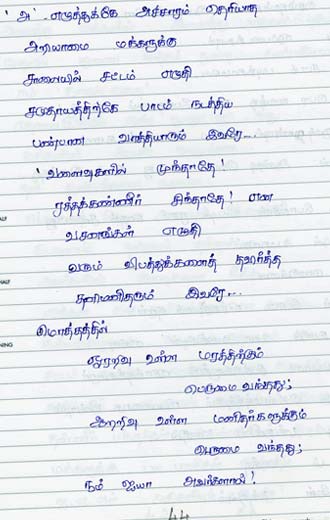 ' அ ' எழுத்துக்கே அச்சாரம் தெரியாத
அறியாமை மக்களுக்கு
சாலையில் சட்டம் எழுதி
சமுதாயத்திற்கே பாடம் நடத்திய
பண்பான வாத்தியாரும் இவரே...
' வளைவுகளில் முந்தாதே!
ரத்தக்கண்ணீர் சிந்தாதே! என
வசனங்கள் எழுதி
வரும் விபத்துக்களைத் தவிர்த்த
இவரே...
மொத்தத்தில்
ஓரறிவு உள்ள மரத்திற்கும்
பெருமை வந்தது;
ஆறறிவு உள்ள மனிதர்களுக்கும்
பெருமை வந்தது;
நம் ஐயா அவர்களால்!
44